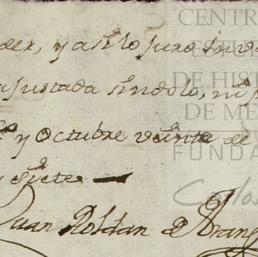 der, y asi lo juro
ajustada sin dolo, ni
y Octubre veinte de
y siete
Juan Roldan de Arang
CENTR
DE HIST
DE MÉ
FUNDA
Carlos